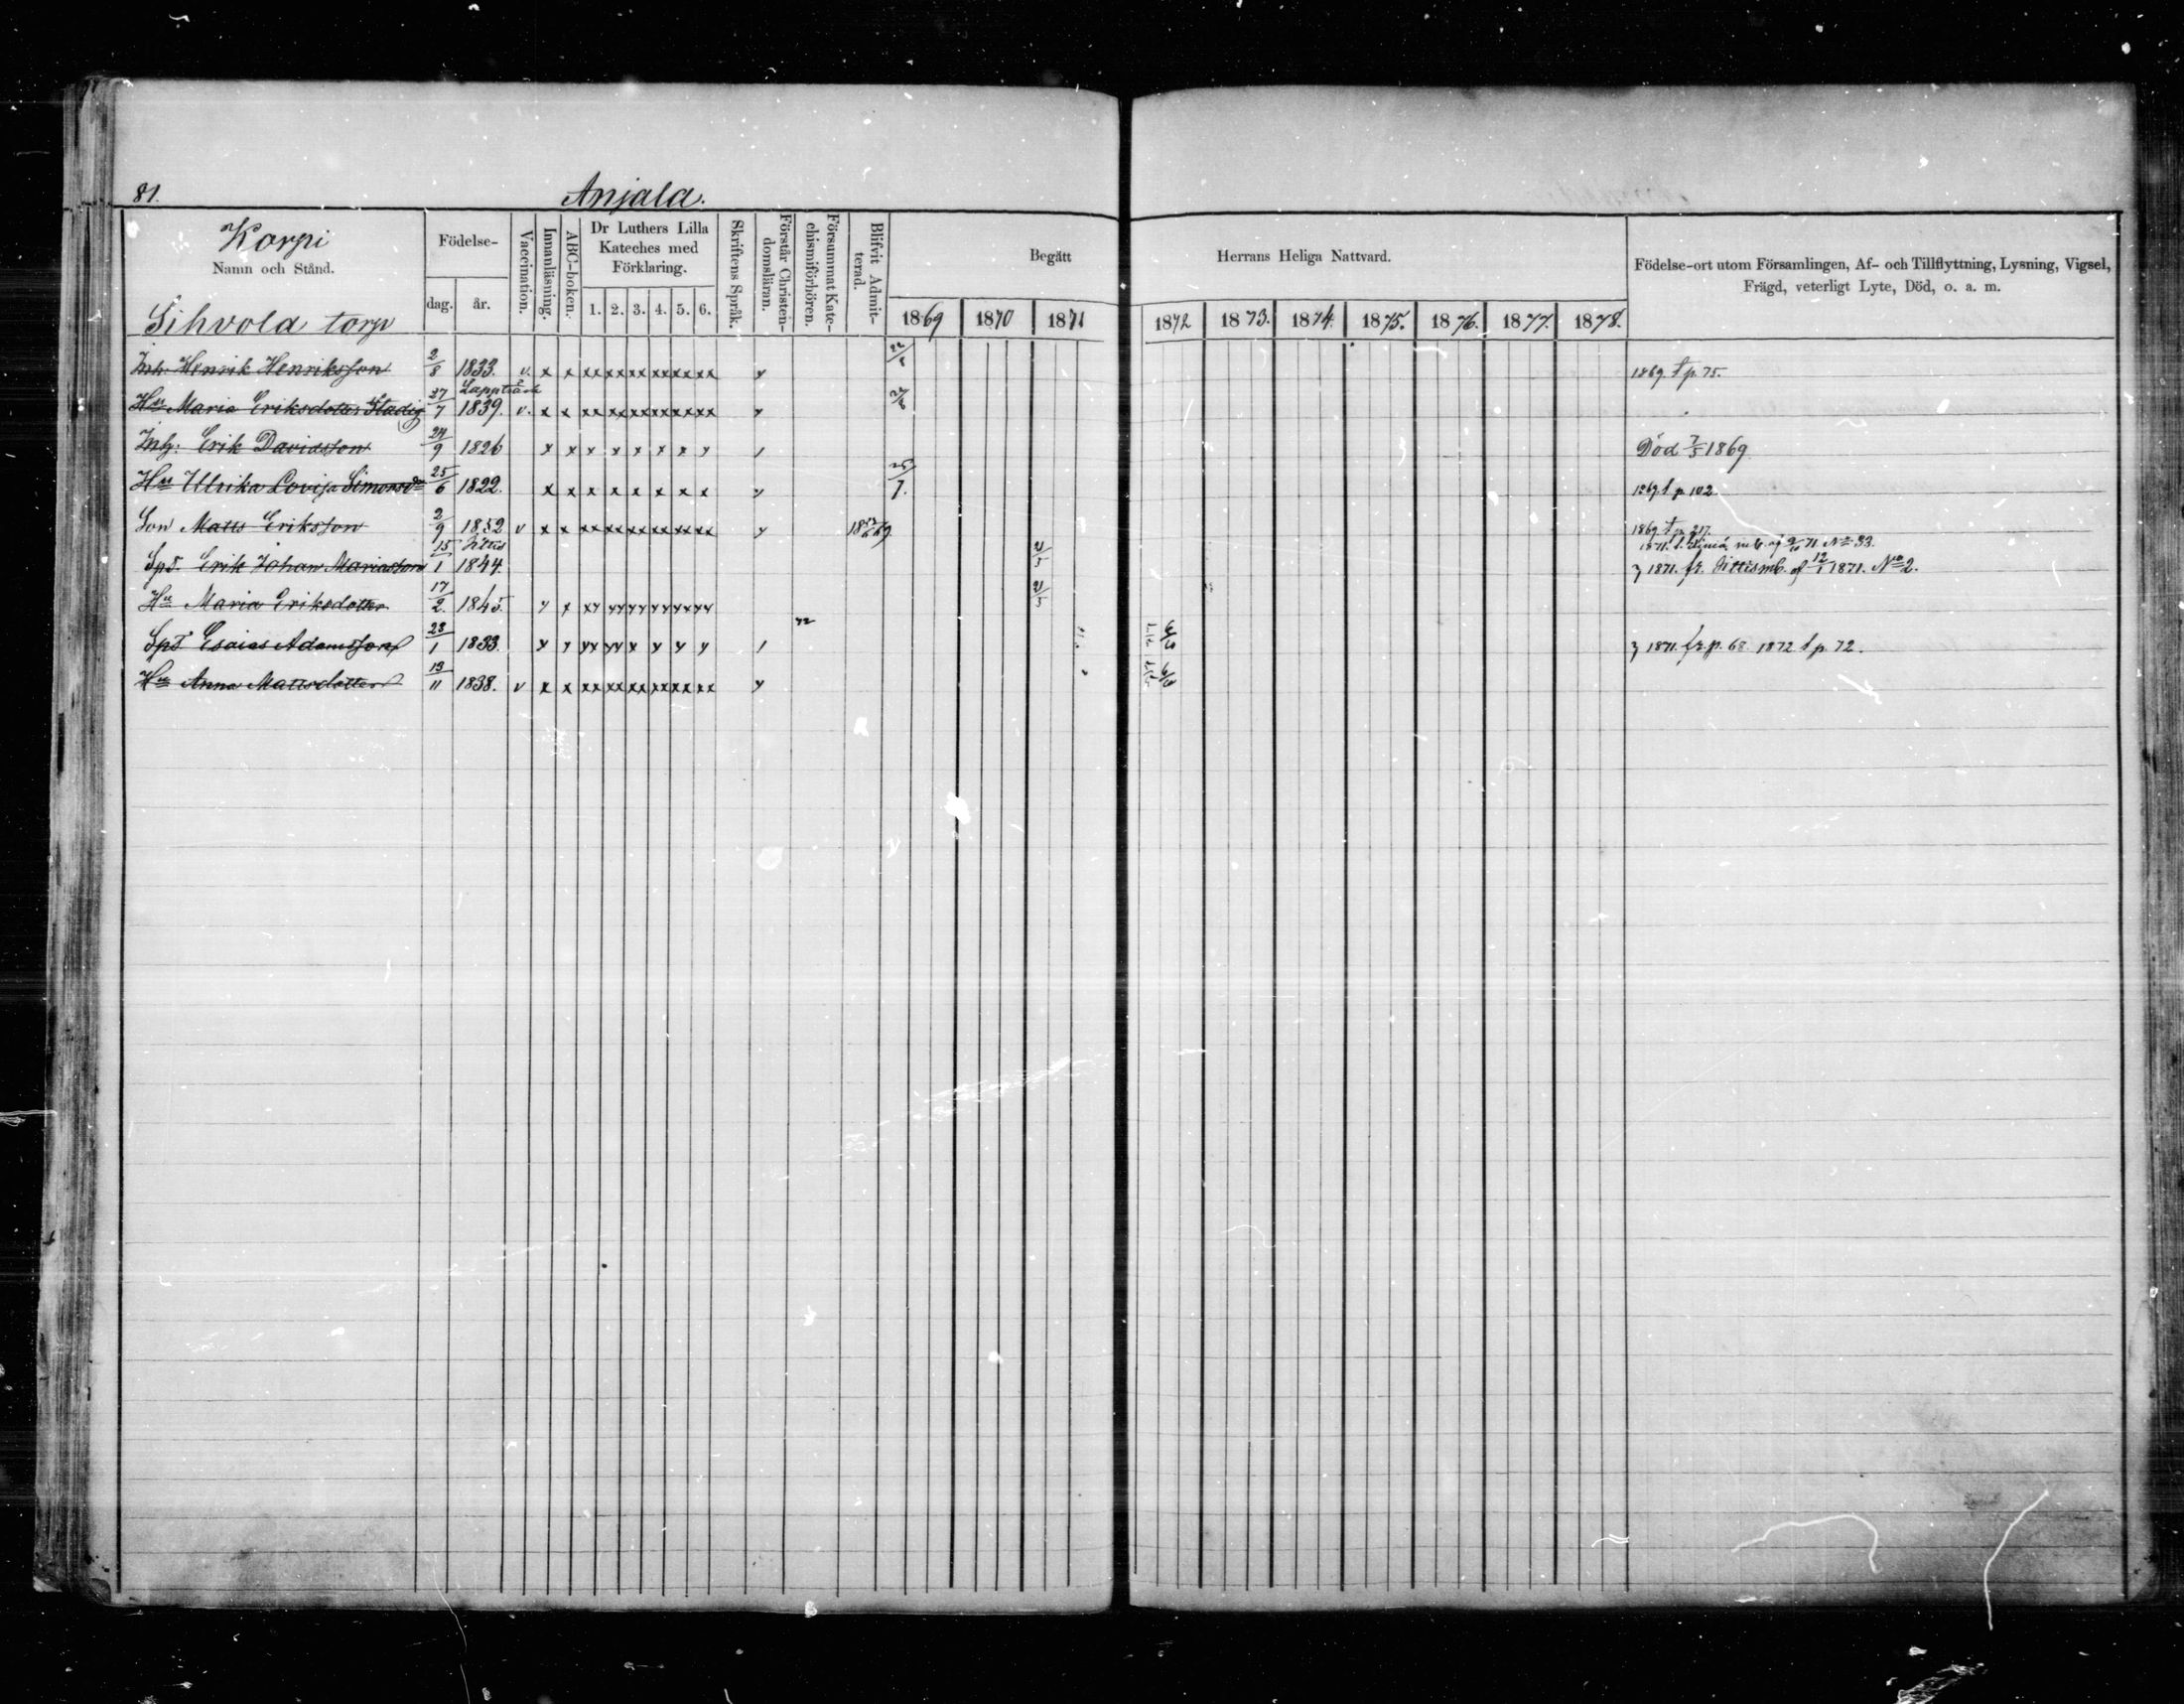 81.
Anjala.
Korpi
Namn och Stånd.
Födelse-
dag. år.
Vaccination.
Innanläsning.
ABC-boken.
Dr Luthers Lilla
Kateches med
Förklaring.
1. 2. 3. 4. 5. 6.
Skriftens Språk.
Förstår Christen-
domsläran.
Försummat Kate-
chismiförhören.
Blifvit Admit-
terad.
Begått Herrans Heliga Nattvard.
1869 1870 1871 1872 1873. 1874. 1875. 1876. 1877. 1878.
Födelse-ort utom Församlingen, Af- och Tillflyttning, Lysning, Vigsel,
Frägd, veterligt Lyte, Död, o. a. m.
Sihvola torp
Inh. Henrik Henriksson 2/8 1833. v. x x xx xx xx xx xx xx y 1869. t p. 75.
Lappträsk
Hu Maria Eriksdotter Stadig 27/7 1839. v. x x xx xx xx xx xx xx y
Inh. Erik Davidsson 24/9 1826 x x x x x x x x Död 7/5 1869
Hu Ulrika Lovisa Simonsdr 25/6 1822. x x x x x x x x y 1869 t p. 102
Son Matts Eriksson 2/9 1852 v x x xx xx xx xx xx xx y 1869 t p. 217.
Sps. Erik Johan Mariasson 15/1 1844. 21/5 1871. fr. Sittis mb. af 12/1 1871. No 2.
Hu Maria Eriksdotter 17/2 1845. y x xy yy yy yy yy yy 21/5
Sps Esaias Adamsson 23/1 1833. 72 1871. fr. p. 68. 1872 t p. 72.
Hu Anna Mattsdotter 13/11 1838. v x x xx xx xx xx xx xx y